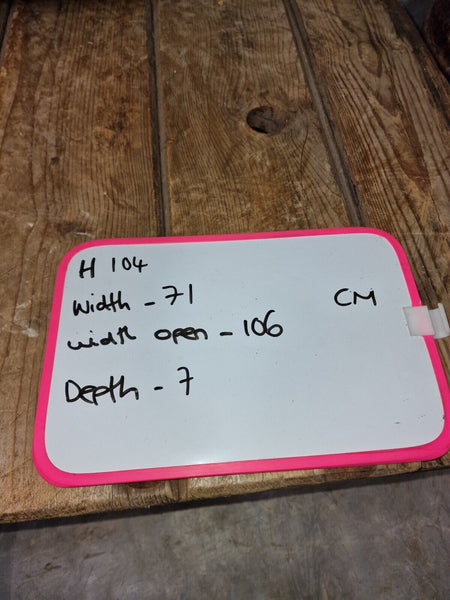 H 104
Width - 71
CM
width open - 106
Depth - 7